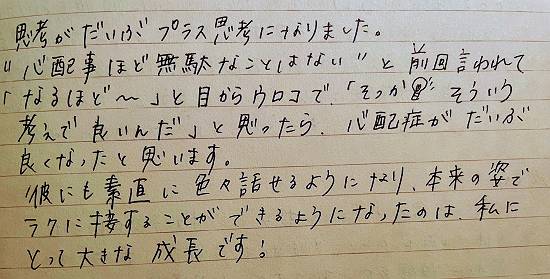 思考がだいぶプラス思考になりました。
"心配事ほど無駄なことはない"と前回言われて
「なるほど〜」と目からウロコで、「そっか そういう
考えで良いんだ」と思ったら、心配症がだいぶ
良くなったと思います。
彼にも素直に色々話せるようになり、本来の姿で
ラクに接することができるようになったのは、私に
とって大きな成長です!